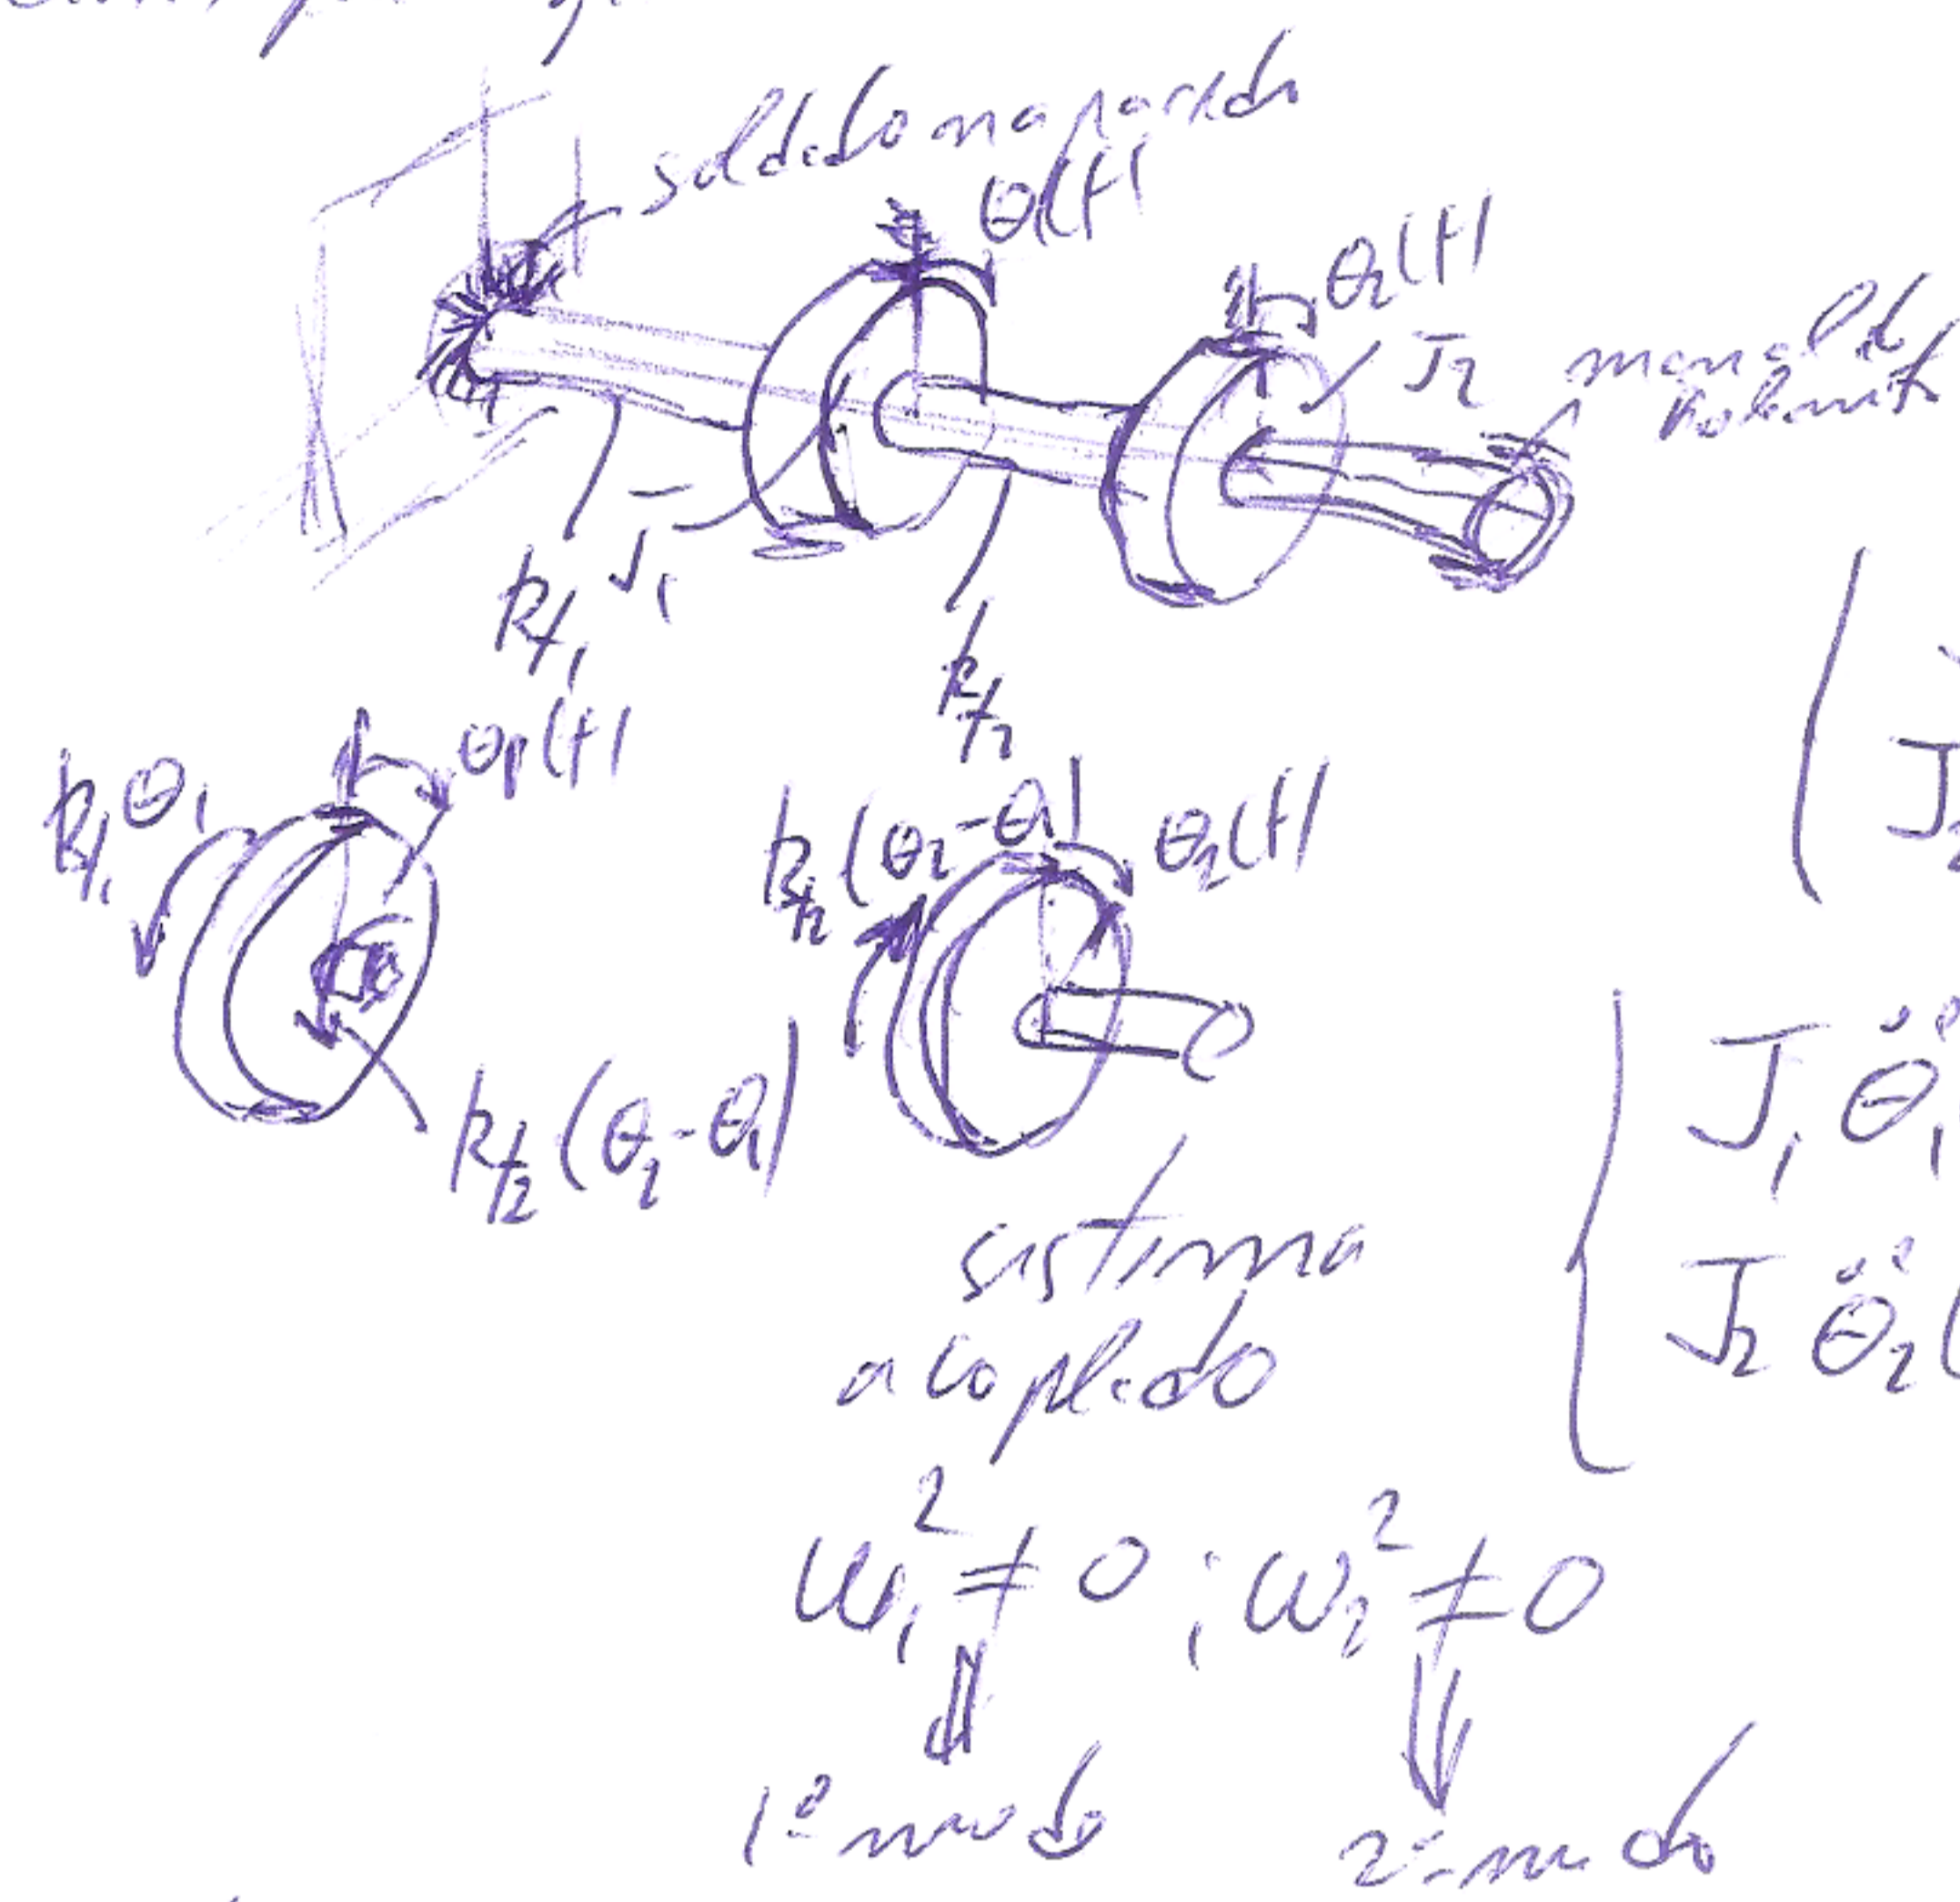 soldado na parede
θ₁(t)
θ₂(t)
J₂
mancal de
rolamento
J₁
kt₁
kt₂
kt₁θ₁
θ₁(t)
kt₂(θ₂-θ₁)
θ₂(t)
J₂
kt₂(θ₂-θ₁)
J₁ θ̈₁
sistema
J₂ θ̈₂(
acoplado
ω₁² ≠ 0 ; ω₂² ≠ 0
1º modo
2º modo